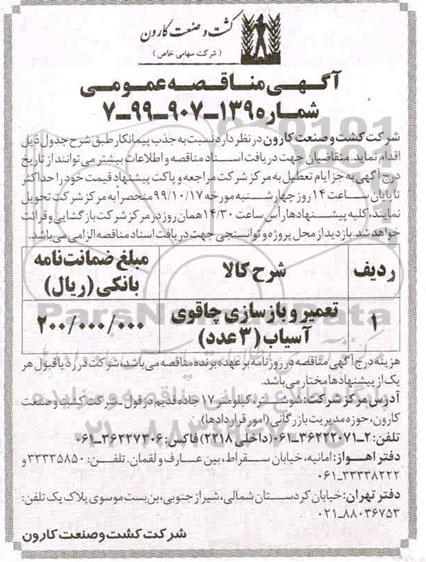 کشت و صنعت کارون
( شرکت سهامی خاص )
آگهی مناقصه عمومی
شماره ۱۳۹-۹۰۷-۹۹-۷
شرکت کشت و صنعت کارون در نظر دارد نسبت به جذب پیمانکار طبق شرح جدول ذیل
اقدام نماید. متقاضیان جهت دریافت اسناد مناقصه و اطلاعات بیشتر می توانند از تاریخ
درج آگهی به جز ایام تعطیل به مرکز شرکت مراجعه و پاکت پیشنهاد قیمت خود را حداکثر
تا پایان ساعت ۱۴ روز چهارشنبه مورخه ۹۹/۱۰/۱۷ منحصراً به مرکز شرکت تحویل
نمایند، کلیه پیشنهادها رأس ساعت ۱۴/۳۰ همان روز در مرکز شرکت بازگشایی و قرائت
خواهد شد. بازدید از محل پروژه و توانسنجی جهت دریافت اسناد مناقصه الزامی می باشد.
ردیف شرح کالا مبلغ ضمانت نامه بانکی (ریال)
۱ تعمیر و بازسازی چاقوی آسیاب (۳ عدد) ۲۰۰/۰۰۰/۰۰۰
هزینه درج آگهی مناقصه در روزنامه بر عهده برنده مناقصه می باشد، شرکت در رد یا قبول هر
یک از پیشنهادها مختار می باشد.
آدرس مرکز شرکت: شوشتر، کیلومتر ۱۷ جاده قدیم دزفول - شرکت کشت و صنعت
کارون، حوزه مدیریت بازرگانی (امور قراردادها)
تلفن: ۲-۳۶۲۲۲۰۷۱-۰۶۱ (داخلی ۲۲۱۸) فاکس: ۳۶۲۲۷۳۰۶-۰۶۱
دفتر اهواز: امانیه، خیابان سقراط، بین عارف و لقمان. تلفن: ۳۳۳۳۵۸۵۰ و
۳۳۳۳۸۲۲۲-۰۶۱
دفتر تهران: خیابان کردستان شمالی، شیراز جنوبی، بن بست موسوی پلاک یک تلفن:
۸۸۰۳۶۷۵۳-۰۲۱
شرکت کشت و صنعت کارون